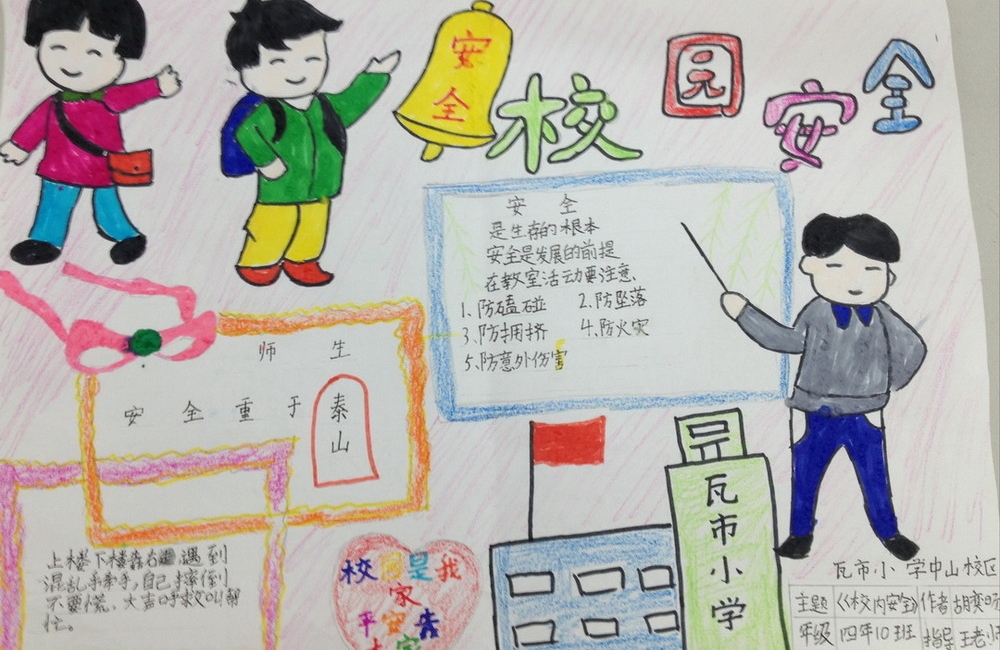 安全
校园安全
安 全
是生存的根本
安全是发展的前提
在教室活动要注意
1、防磕碰 2、防坠落
3、防拥挤 4、防火灾
5、防意外伤害
师 生
安 全 重 于 泰山
瓦市小学
上楼下楼靠右 遇到
混乱手牵手,自己摔倒
不要慌、大声呼救叫帮
忙。
校园是我
家
平安告
瓦市小学中山校区
主题 《校内安全》 作者 胡
年级 四年10班 指导 王老师